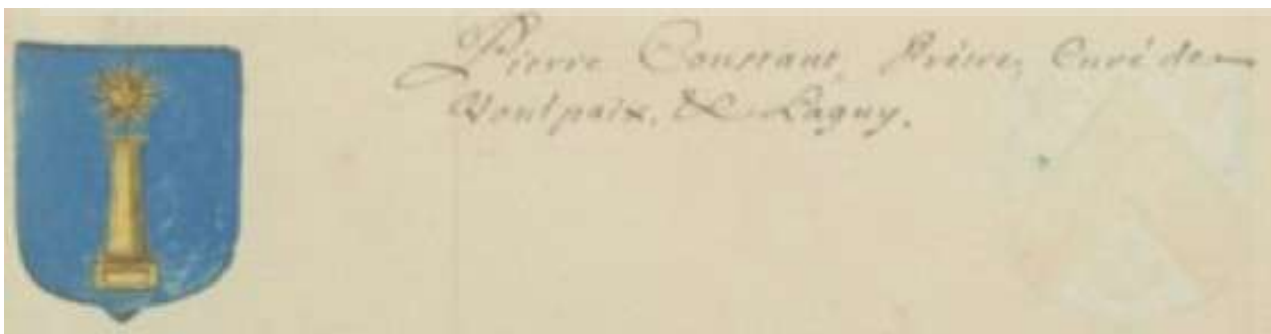 Pierre Constant, Prêtre, Curé de
Voulpaix, & Lagny.